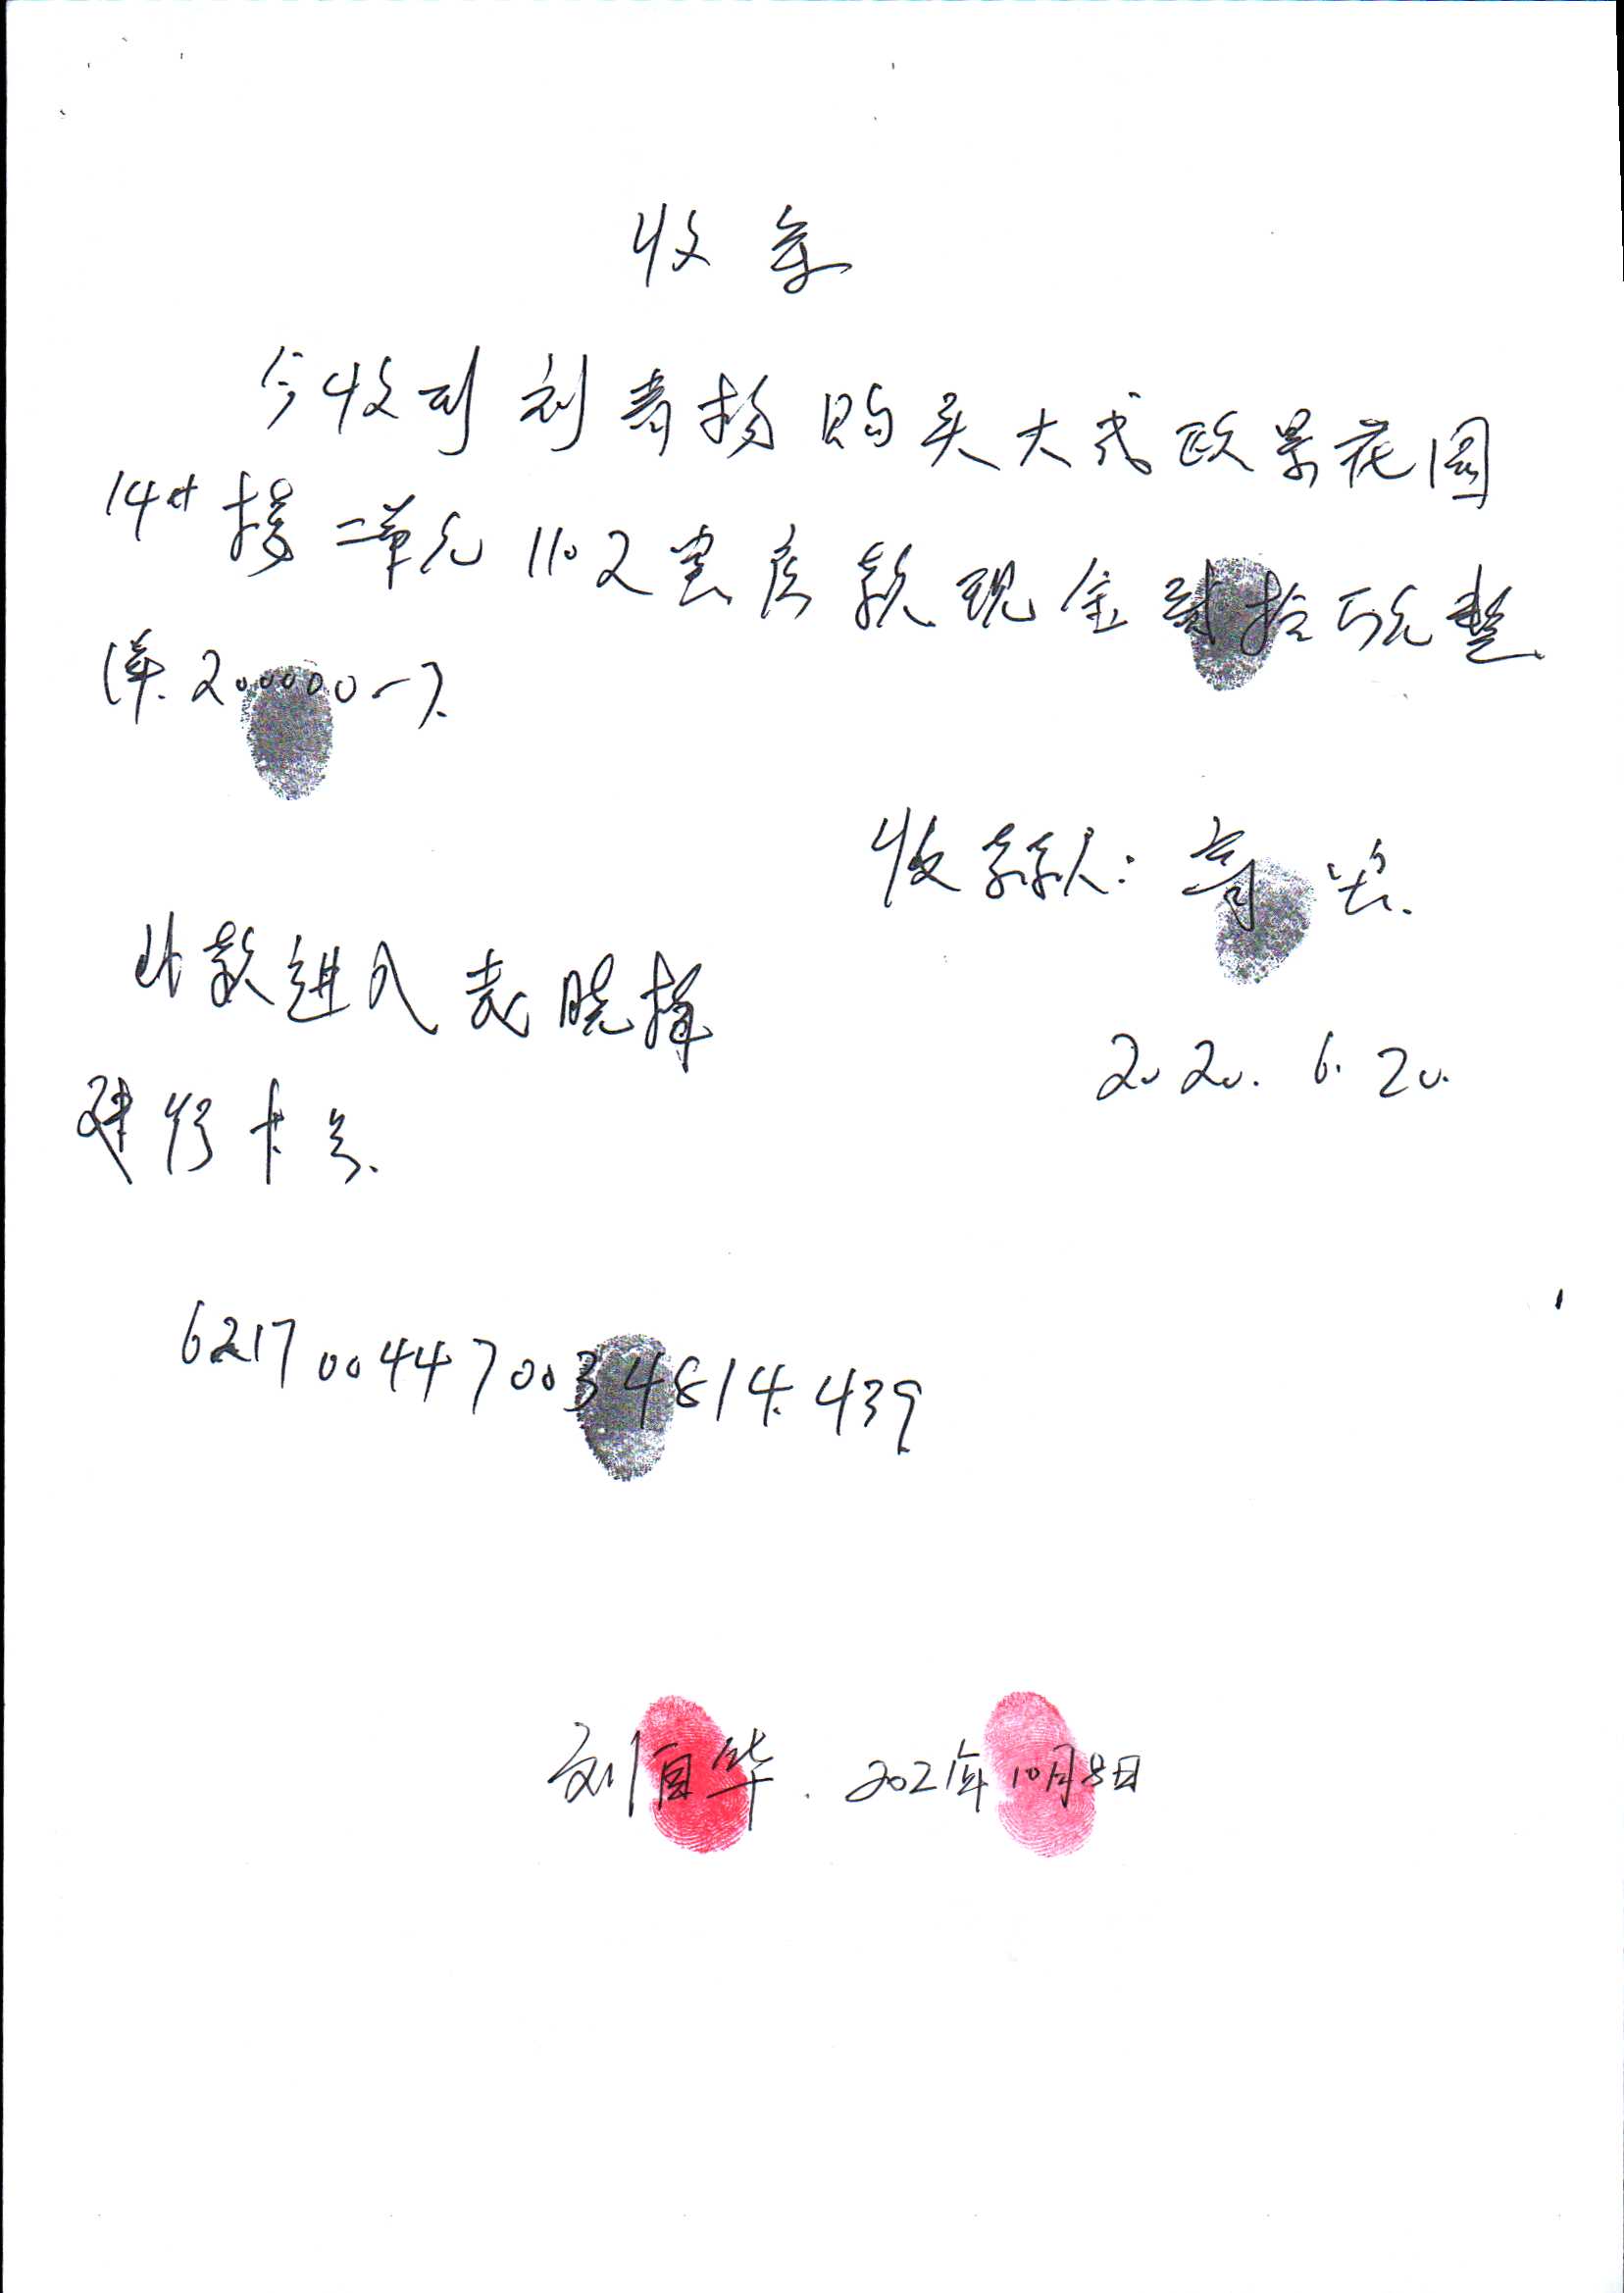 收条
今收到刘青扬购买大式欧景花园
14#楼二单元1102室房款现金贰拾万元整
(¥.200000-).
收款人:
此款进入 晓
2020.6.20.
建行卡号.
6217004470034814.439
刘自华.2021年10月8日